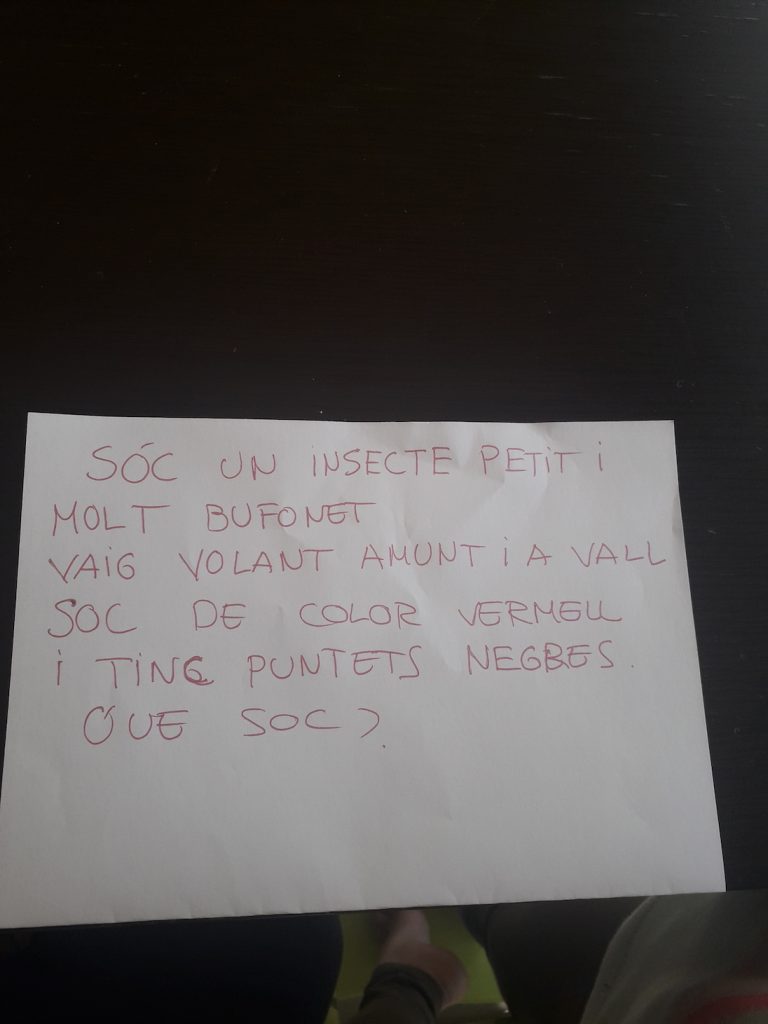 SÓC UN INSECTE PETIT I
MOLT BUFONET
VAIG VOLANT AMUNT I A VALL
SOC DE COLOR VERMELL
I TINC PUNTETS NEGRES.
QUE SOC?